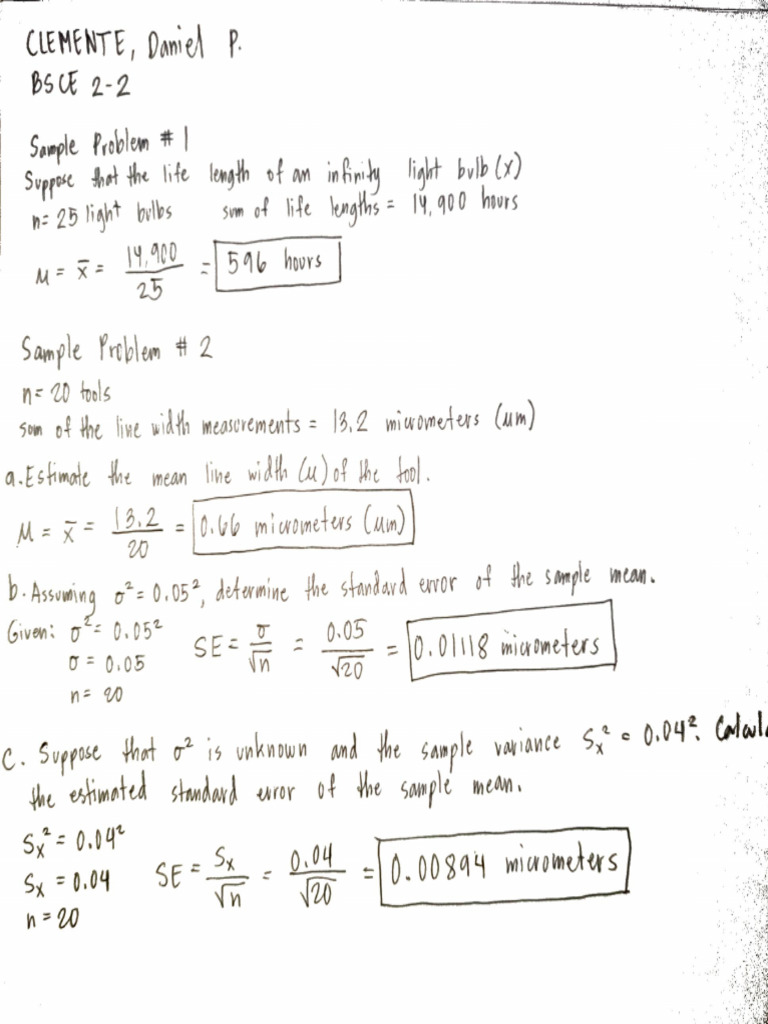 CLEMENTE, Daniel P.
BSCE 2-2
Sample Problem # 1
Suppose that the life length of an infinity light bulb (x)
n= 25 light bulbs sum of life lengths = 14,900 hours
μ = x̄ = 14,900 / 25 = 596 hours
Sample Problem # 2
n= 20 tools
sum of the line width measurements = 13.2 micrometers (um)
a. Estimate the mean line width (u) of the tool.
μ = x̄ = 13.2 / 20 = 0.66 micrometers (um)
b. Assuming σ² = 0.05², determine the standard error of the sample mean.
Given: σ² = 0.05² SE = σ / √n = 0.05 / √20 = 0.01118 micrometers
σ = 0.05
n = 20
C. Suppose that σ² is unknown and the sample variance Sx² = 0.04². Calcula
the estimated standard error of the sample mean.
Sx² = 0.04²
Sx = 0.04 SE = Sx / √n = 0.04 / √20 = 0.00894 micrometers
n = 20